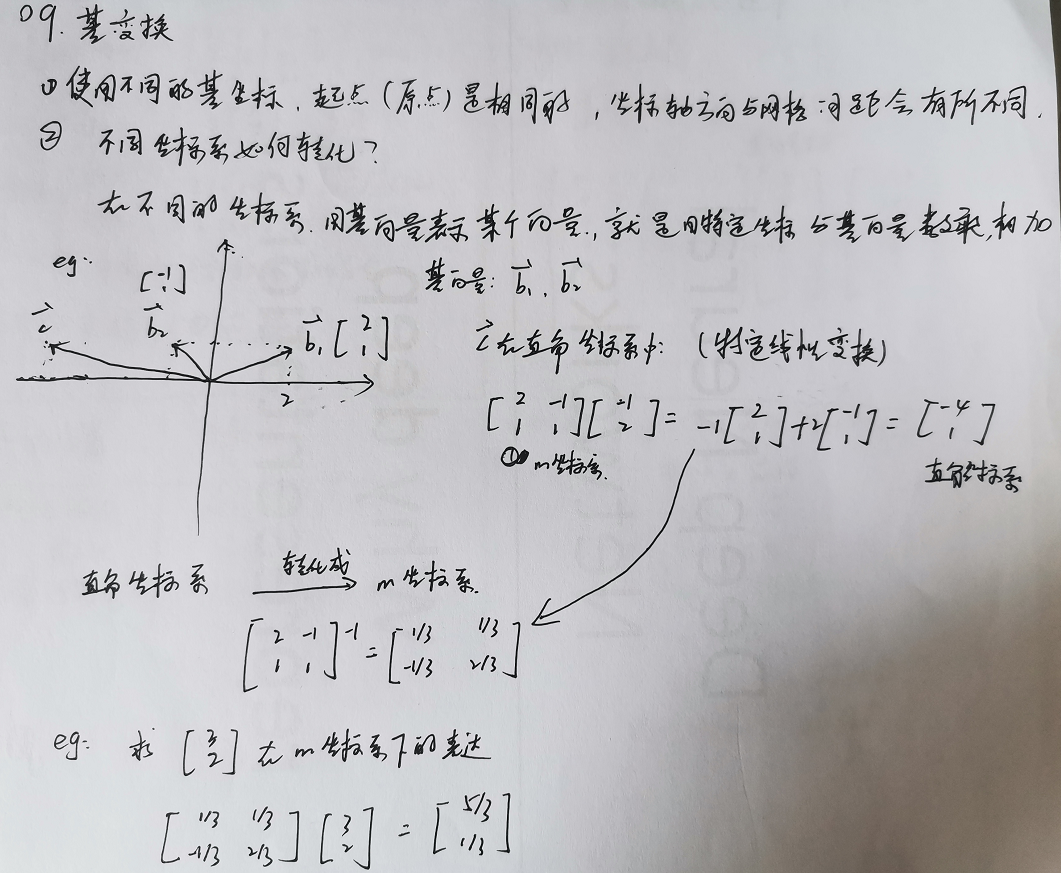 09. 基变换
① 使用不同的基坐标，起点（原点）是相同的，坐标轴方向与网格间距会有所不同．
② 不同坐标系如何转化？
在不同的坐标系．用基向量表示某个向量．，就是用特定坐标与基向量数乘，相加
eg: 基向量: b₁、b₂
[-1 1] b₂ c b₁ [2 1] 2
c在直角坐标系中: （特定线性变换）
[2 -1; 1 1][-1; 2] = -1[2; 1]+2[-1; 1] = [-4; 1]
① m坐标系. 直角坐标系
直角坐标系 转化成 m坐标系.
[2 -1; 1 1]⁻¹ = [1/3 1/3; -1/3 2/3]
eg: 求 [3; 2] 在m坐标系下的表达
[1/3 1/3; -1/3 2/3] [3; 2] = [5/3; 1/3]